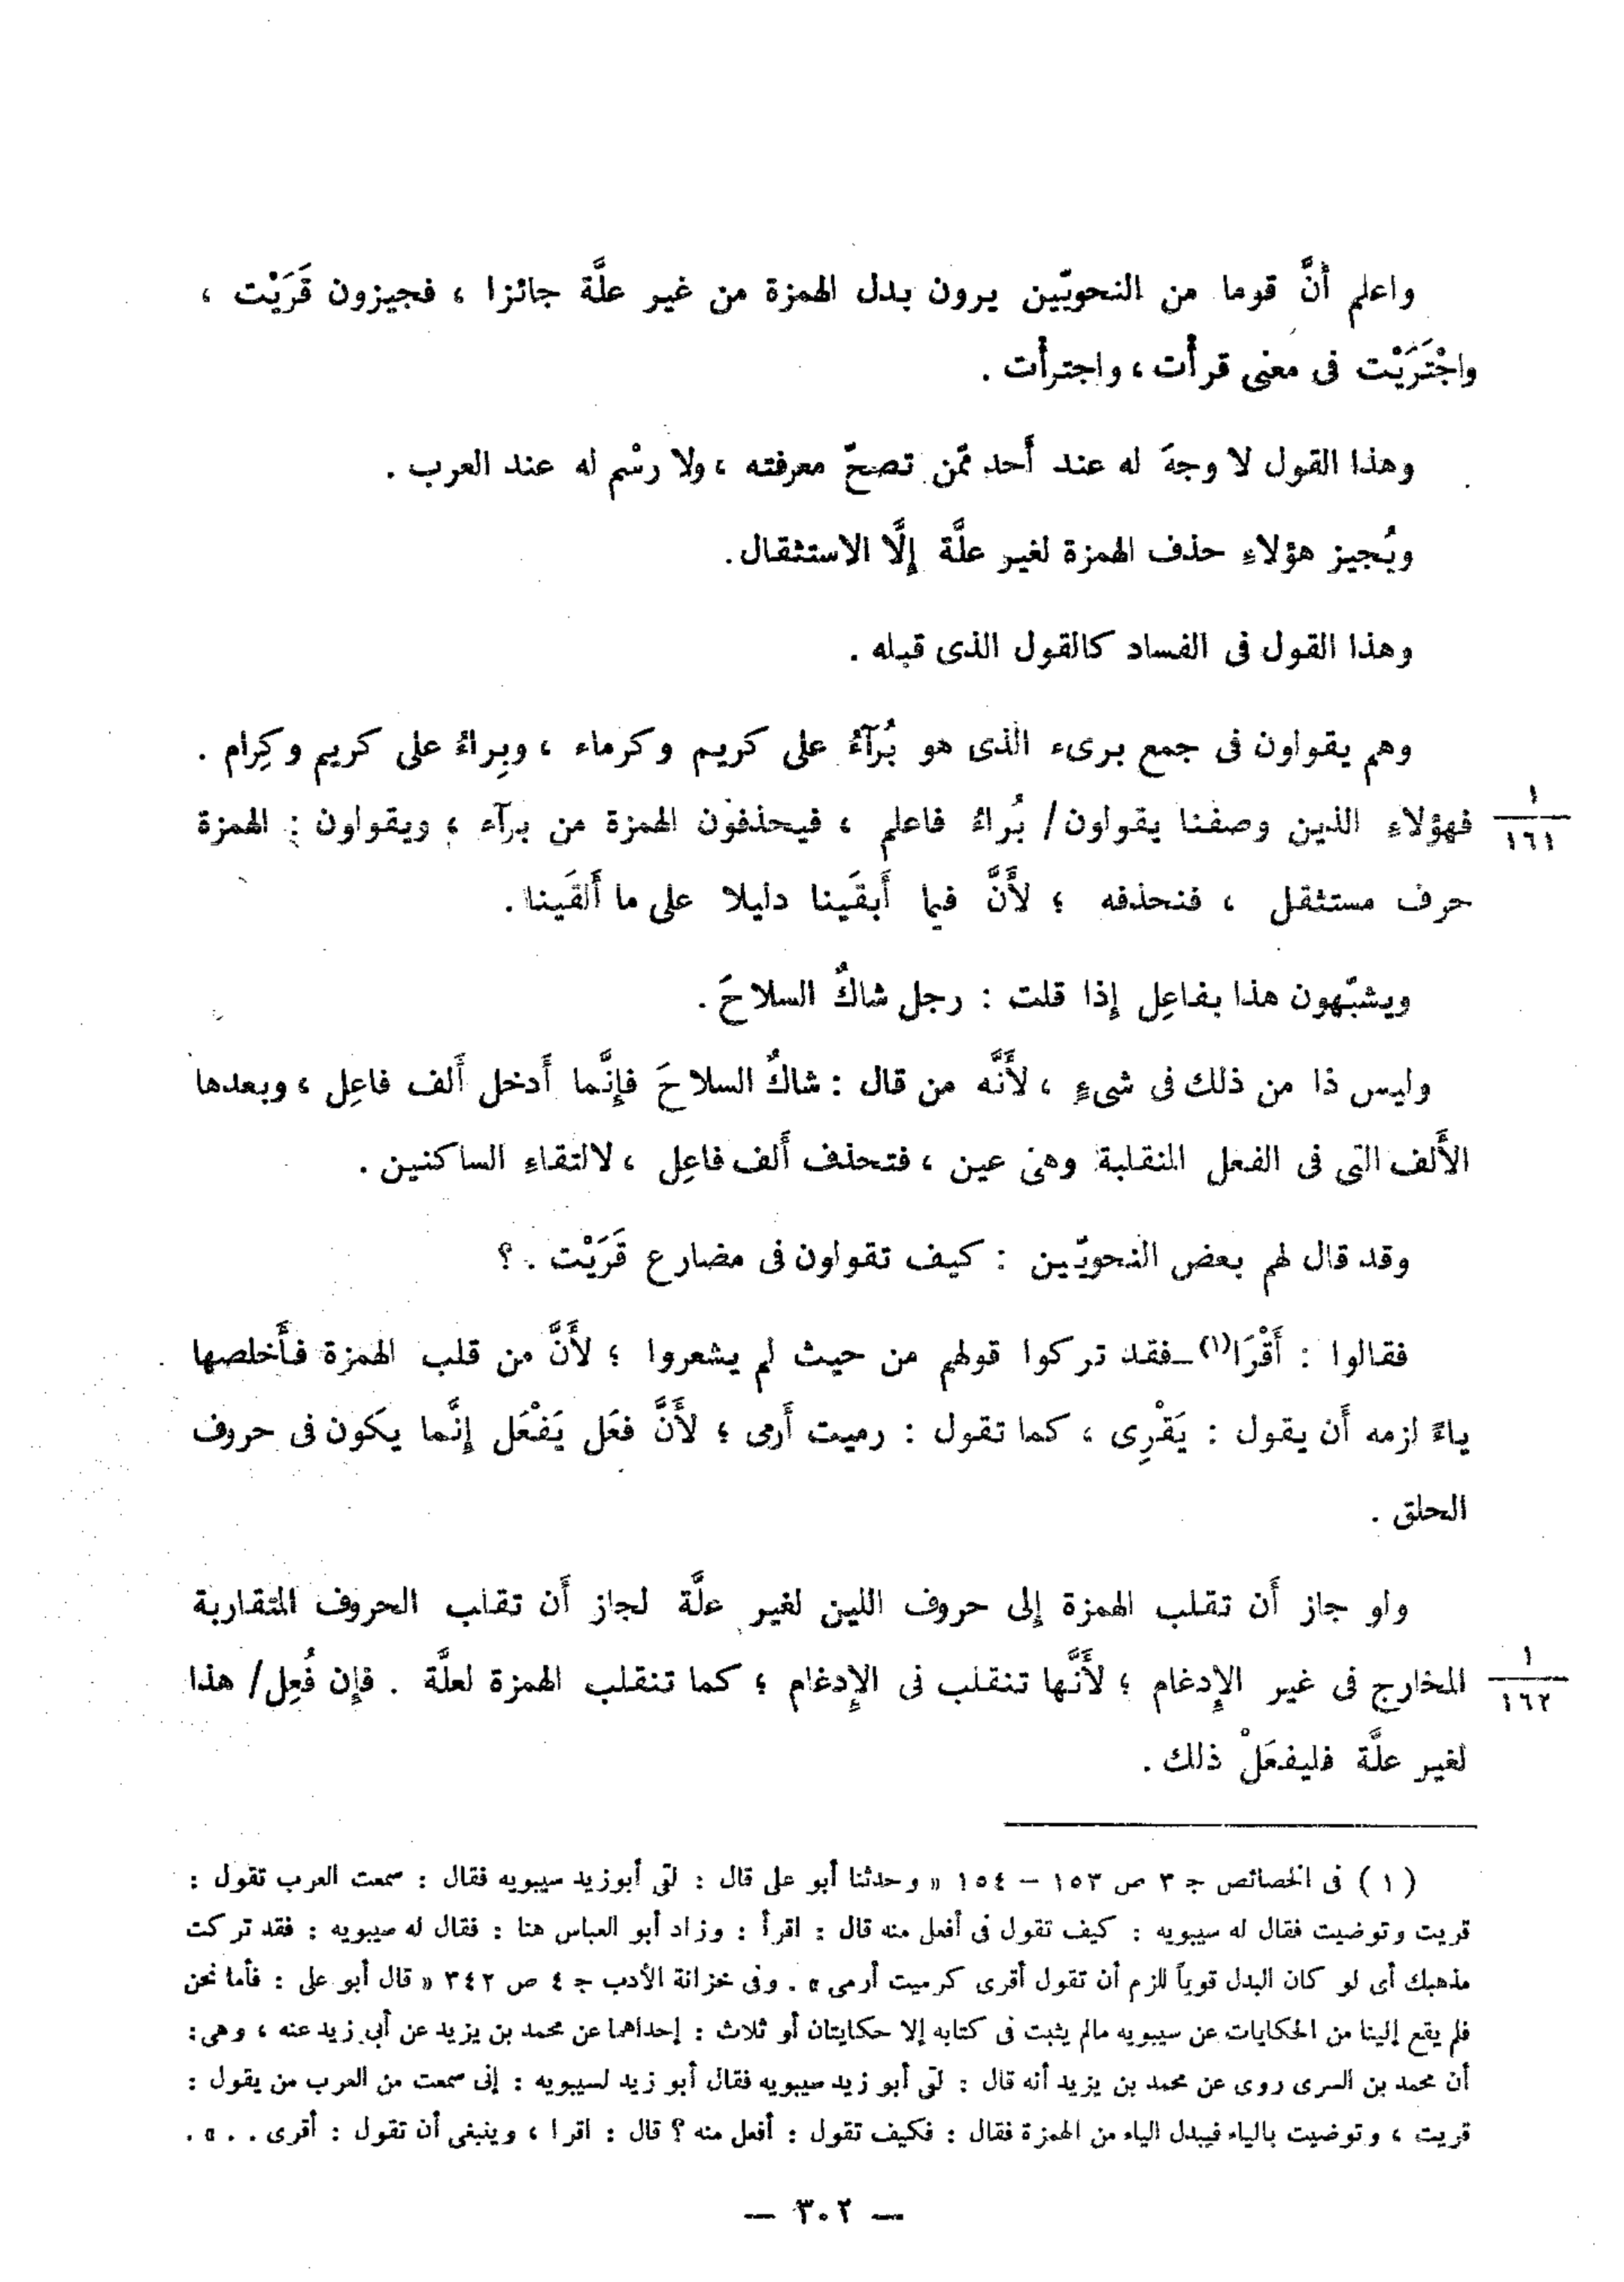 واعلم أَنَّ قوما من النحويّين يرون بدل الهمزة من غير علَّة جائزا ، فجيزون قَرَيْت ،
واجْتَرَيْت فى معنى قرأْت ، واجترأْت .
وهذا القول لا وجهَ له عند أَحد ممّن تصحّ معرفته ، ولا رسْم له عند العرب .
ويُجيز هؤلاءِ حذف الهمزة لغير علَّة إِلَّا الاستثقال .
وهذا القول فى الفساد كالقول الذى قبله .
وهم يقولون فى جمع برىء الذى هو بُرَآءُ على كريم وكرماء ، وبِراءُ على كريم وكِرام .
فهؤلاءِ الذين وصفنا يقولون / بُراءُ فاعلم ، فيحذفون الهمزة من برآء ، ويقولون : الهمزة
١
١٦١
حرف مستثقل ، فنحذفه ؛ لأَنَّ فيما أَبقَينا دليلا على ما أَلقَينا .
ويشبّهون هذا بفاعِل إِذا قلت : رجل شاكٌ السلاحَ .
وليس ذا من ذلك فى شىءٍ ، لأَنَّه من قال : شاكٌ السلاحَ فإِنَّما أَدخل أَلف فاعِل ، وبعدها
الأَلف التى فى الفعل المنقلبة وهى عين ، فتحذف أَلف فاعِل ، لالتقاءِ الساكنين .
وقد قال لهم بعض النحويّين : كيف تقولون فى مضارع قَرَيْت . ؟
فقالوا : أَقْرَا(١) – فقد تركوا قولهم من حيث لم يشعروا ؛ لأَنَّ من قلب الهمزة فأَخلصها
ياءً لزمه أَن يقول : يَقْرِى ، كما تقول : رميت أَرمى ؛ لأَنَّ فعَل يَفْعَل إِنَّما يكون فى حروف
الحلق .
ولو جاز أَن تقلب الهمزة إِلى حروف اللين لغير علَّة لجاز أَن تقلب الحروف المتقاربة
المخارج فى غير الإِدغام ؛ لأَنَّها تنقلب فى الإِدغام ؛ كما تنقلب الهمزة لعلَّة . فإِن فُعِل / هذا
١
١٦٢
لغير علَّة فليفعَلْ ذلك .
( ١ ) فى الخصائص ج ٣ ص ١٥٣ – ١٥٤ « وحدثنا أبو على قال : لقى أبوزيد سيبويه فقال : سمعت العرب تقول :
قريت وتوضيت فقال له سيبويه : كيف تقول فى أفعل منه قال : اقرأ : وزاد أبو العباس هنا : فقال له سيبويه : فقد تركت
مذهبك أى لو كان البدل قوياً للزم أن تقول أقرى كرميت أرمى » . وفى خزانة الأدب ج ٤ ص ٣٤٢ « قال أبو على : فأما نحن
فلم يقع إلينا من الحكايات عن سيبويه مالم يثبت فى كتابه إلا حكايتان أو ثلاث : إحداهما عن محمد بن يزيد عن أبى زيد عنه ، وهى :
أن محمد بن السرى روى عن محمد بن يزيد أنه قال : لقى أبو زيد سيبويه فقال أبو زيد لسيبويه : إنى سمعت من العرب من يقول :
قريت ، وتوضيت بالياء فيبدل الياء من الهمزة فقال : فكيف تقول : أفعل منه ؟ قال : اقرا ، وينبغى أن تقول : أقرى . . » .
— ٣٠٢ —